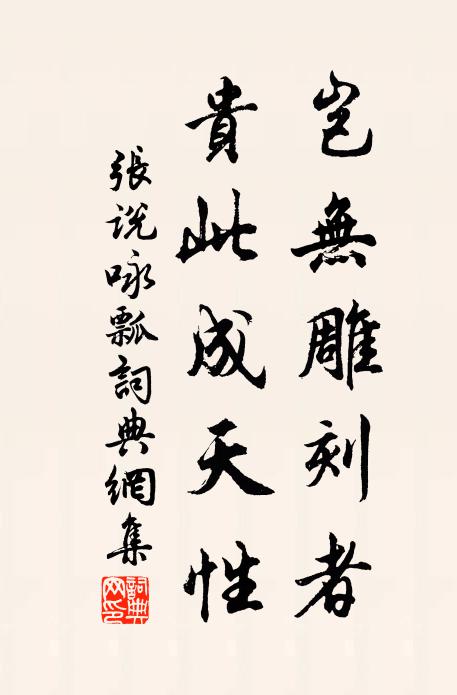 豈無雕刻者
貴此成天性
張说咏瓢詞典網集
詞典網印